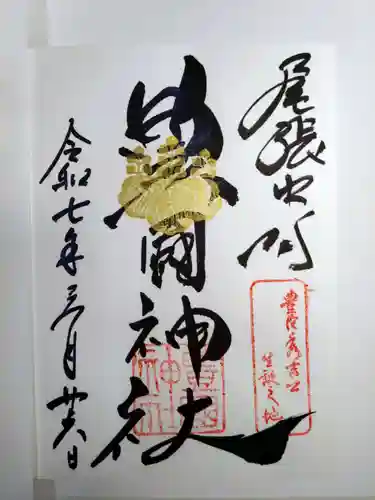 尾張中村
豊臣秀吉公
生誕之地
豊國神社
豊國神社
令和七年三月廿六日